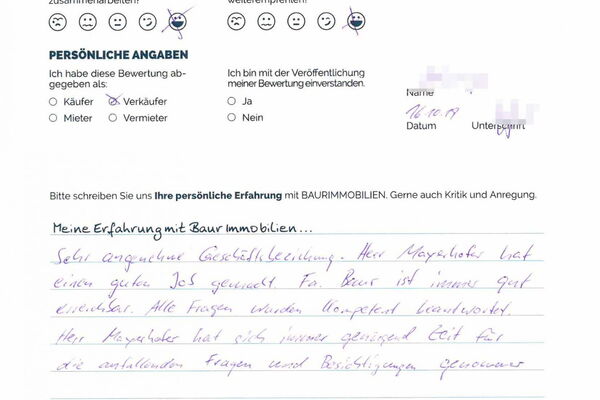 zusammenarbeiten?
weiterempfehlen?
PERSÖNLICHE ANGABEN
Ich habe diese Bewertung ab-
gegeben als:
Käufer Verkäufer
Mieter Vermieter
Ich bin mit der Veröffentlichung
meiner Bewertung einverstanden.
Ja
Nein
Name
16.10.19
Datum Unterschrift
Bitte schreiben Sie uns Ihre persönliche Erfahrung mit BAURIMMOBILIEN. Gerne auch Kritik und Anregung.
Meine Erfahrung mit Baur Immobilien...
Sehr angenehme Geschäftsbeziehung. Herr Mayerhofer hat
einen guten Job gemacht. Fa. Baur ist immer gut
erreichbar. Alle Fragen wurden kompetent beantwortet.
Herr Mayerhofer hat sich immer genügend Zeit für
die anfallenden Fragen und Besichtigungen genommen